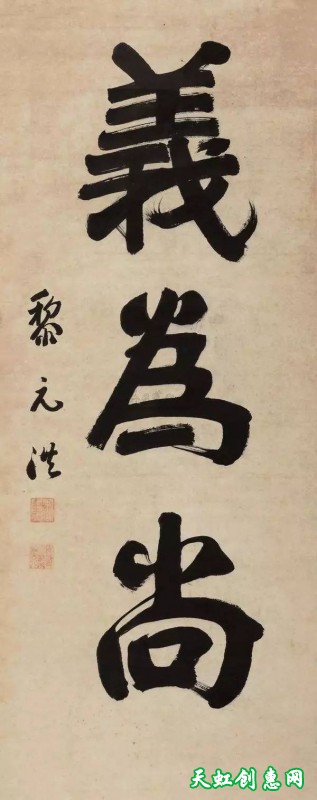 義為尚
黎元洪
天虹创惠网